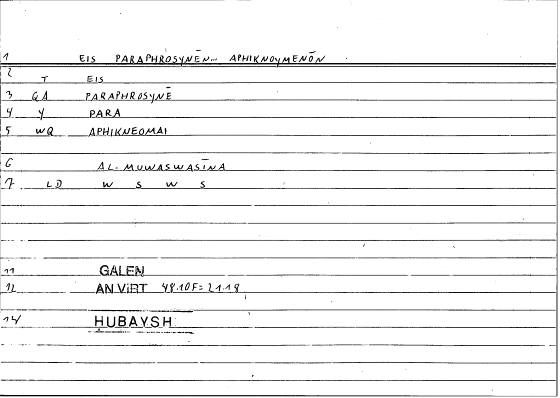 1 EIS PARAPHROSYNĒN... APHIKNOYMENŌN
2 T EIS
3 GA PARAPHROSYNĒ
4 Y PARA
5 WQ APHIKNEOMAI
6 AL-MUWASWASĪNA
7 LD W S W S
11 GALEN
12 AN VIRT 48.10F=21.18
14 HUBAYSH